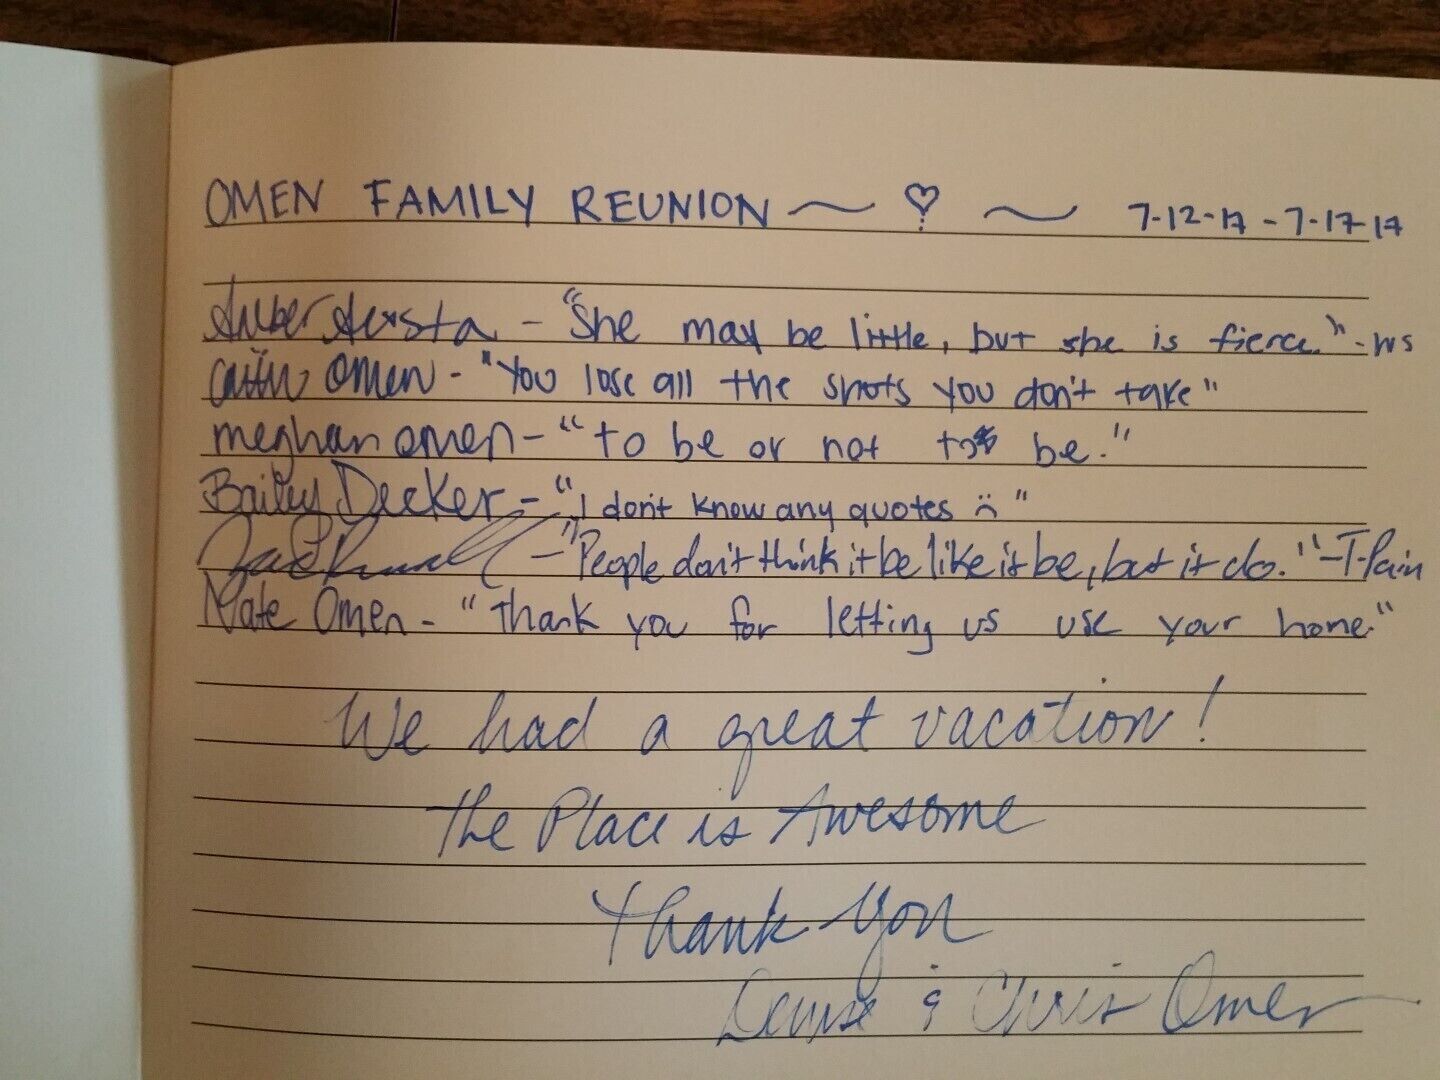 OMEN FAMILY REUNION ~ ♡ ~ 7-12-17 - 7-17-17
- "She may be little, but she is fierce." - WS
Caitlin Omen - "You lose all the shots you don't take"
meghan omen - "to be or not to be."
Bailey Decker - "I don't know any quotes :("
- "People don't think it be like it be, but it do." - T-Pain
Nate Omen - "Thank you for letting us use your home."
We had a great vacation!
The Place is Awesome
Thank You
Denise & Chris Omen